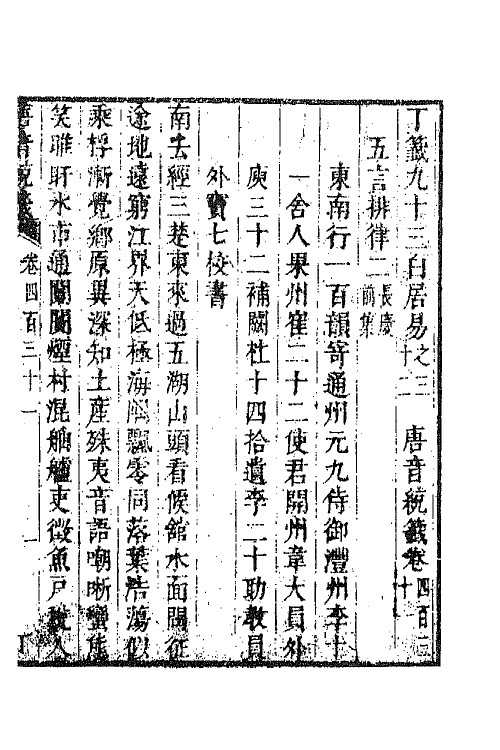 丁籤九十三白居易之三十二　唐音統籤卷四百三十一
五言排律二長慶前集
東南行一百韻寄通州元九侍御澧州李十
一舍人果州崔二十二使君開州韋大員外
庾三十二補闕杜十四拾遺李二十助教員
外竇七校書
南去經三楚東來過五湖山頭看候舘水面問征
途地遠窮江界天低極海隅飄零同落葉浩蕩似
乘桴漸覺鄉原異深知土產殊夷音語嘲哳蠻態
笑睢盱水市通闤闠煙村混舳艫吏徵魚戶稅人
唐音統籤　卷四百三十一　一　丁